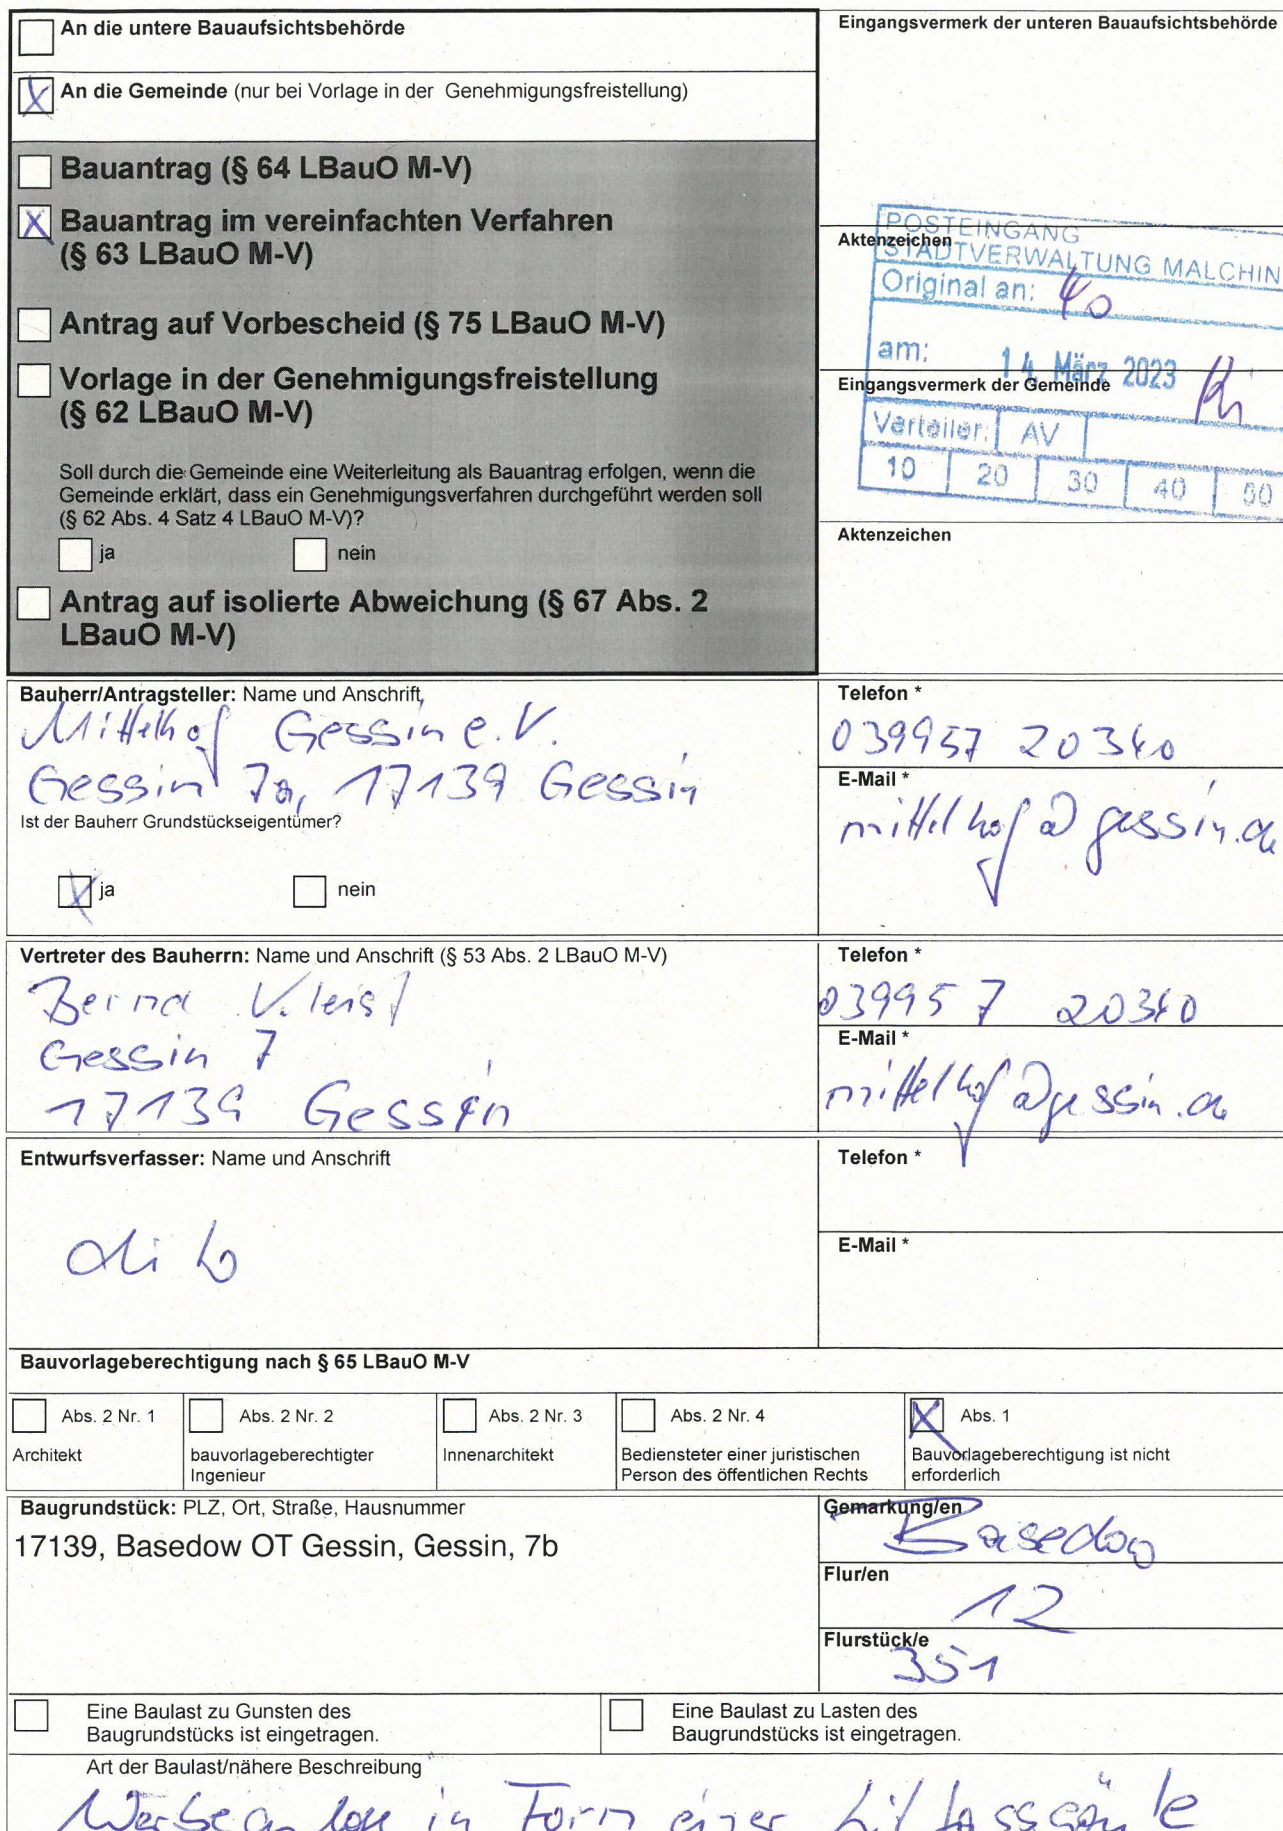 An die untere Bauaufsichtsbehörde
An die Gemeinde (nur bei Vorlage in der Genehmigungsfreistellung)
Bauantrag (§ 64 LBauO M-V)
Bauantrag im vereinfachten Verfahren
(§ 63 LBauO M-V)
Antrag auf Vorbescheid (§ 75 LBauO M-V)
Vorlage in der Genehmigungsfreistellung
(§ 62 LBauO M-V)
Soll durch die Gemeinde eine Weiterleitung als Bauantrag erfolgen, wenn die
Gemeinde erklärt, dass ein Genehmigungsverfahren durchgeführt werden soll
(§ 62 Abs. 4 Satz 4 LBauO M-V)?
ja nein
Antrag auf isolierte Abweichung (§ 67 Abs. 2
LBauO M-V)
Eingangsvermerk der unteren Bauaufsichtsbehörde
Aktenzeichen
POSTEINGANG
STADTVERWALTUNG MALCHIN
Original an: 40
am: 14. März 2023
Eingangsvermerk der Gemeinde
Verteiler: AV
10 20 30 40 60
Aktenzeichen
Bauherr/Antragsteller: Name und Anschrift
Mittelhof Gessin e.V.
Gessin 7a, 17139 Gessin
Ist der Bauherr Grundstückseigentümer?
ja nein
Telefon *
039957 20340
E-Mail *
mittelhof@gessin.de
Vertreter des Bauherrn: Name und Anschrift (§ 53 Abs. 2 LBauO M-V)
Bernd Kleist
Gessin 7
17139 Gessin
Telefon *
039957 20340
E-Mail *
mittelhof@gessin.de
Entwurfsverfasser: Name und Anschrift
dito
Telefon *
E-Mail *
Bauvorlageberechtigung nach § 65 LBauO M-V
Abs. 2 Nr. 1 Abs. 2 Nr. 2 Abs. 2 Nr. 3 Abs. 2 Nr. 4 Abs. 1
Architekt bauvorlageberechtigter Innenarchitekt Bediensteter einer juristischen Bauvorlageberechtigung ist nicht
Ingenieur Person des öffentlichen Rechts erforderlich
Baugrundstück: PLZ, Ort, Straße, Hausnummer
17139, Basedow OT Gessin, Gessin, 7b
Gemarkung/en
Basedow
Flur/en
12
Flurstück/e
351
Eine Baulast zu Gunsten des Eine Baulast zu Lasten des
Baugrundstücks ist eingetragen. Baugrundstücks ist eingetragen.
Art der Baulast/nähere Beschreibung
Werbeanlage in Form einer Litfasssäule